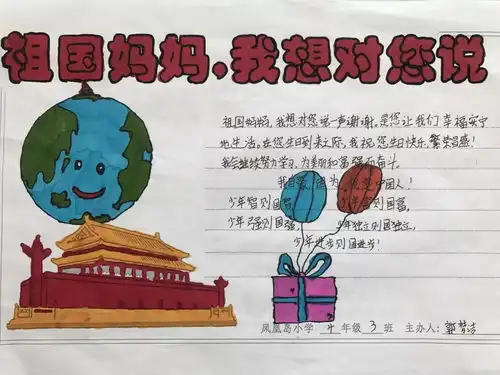 祖国妈妈，我想对您说
祖国妈妈，我想对您说一声谢谢，是您让我们幸福安宁
地生活。在您生日到来之际，我祝您生日快乐，繁荣昌盛！
我会继续努力学习，为美丽和富强而奋斗。
我自豪，因为，我是中国人！
少年智则国智， 少年富则国富，
少年强则国强， 少年独立则国独立，
少年进步则国进步！
凤凰岛小学 4 年级 3 班 主办人：郭梦